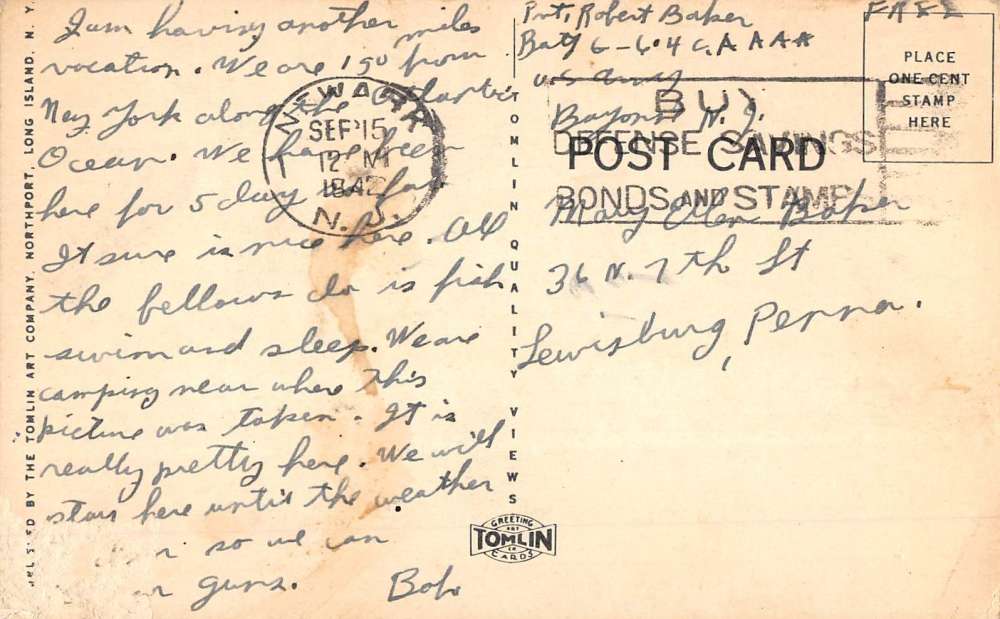 I am having another
vacation. We are 150 miles from
New York along the Atlantic
Ocean. We have been
here for 5 days so far
It sure is nice here. All
the fellows do is fish
swim and sleep. We are
camping near where this
picture was taken. It is
really pretty here. We will
stay here until the weather
so we can
guns. Bob
Pvt. Robert Baker
Baty G-604 C.A AAA
U S Army
Bayonne N. J.
FREE
PLACE
ONE CENT
STAMP
HERE
NEWARK
SEP 15
12 M
1942
N.J.
BUY
DEFENSE SAVINGS
BONDS AND STAMPS
POST CARD
Mary Ellen Baker
36 N. 7th St
Lewisburg, Penna.
TOMLIN QUALITY VIEWS
GREETING
ART
TOMLIN
IN
CARDS
BY THE TOMLIN ART COMPANY, NORTHPORT, LONG ISLAND, N. Y.